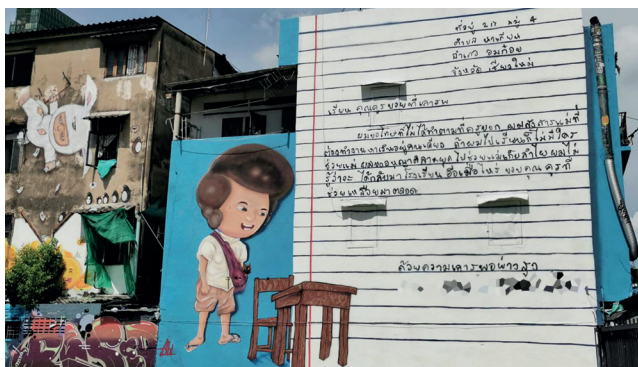 ที่อยู่ 213 หมู่ 4
ตำบล นาเกียน
อำเภอ อมก๋อย
จังหวัด เชียงใหม่
เรียน คุณครูยอยที่เคารพ
ผมขอโทษที่ไม่ได้ทำตามที่ครูบอก ผมสงสารแม่ที่
ต้องทำงานหาเงินอยู่คนเดียว ถ้าผมไปเรียนก็ไม่มีใคร
ช่วยแม่ ผมขออนุญาติลาหยุดไปช่วยแม่เก็บลำไย ผมไม่
รู้ว่าจะได้กลับมาโรงเรียนอีกเมื่อไหร่ ขอบคุณครูที่
ช่วยเหลือผมมาตลอด
ด้วยความเคารพอย่างสูง